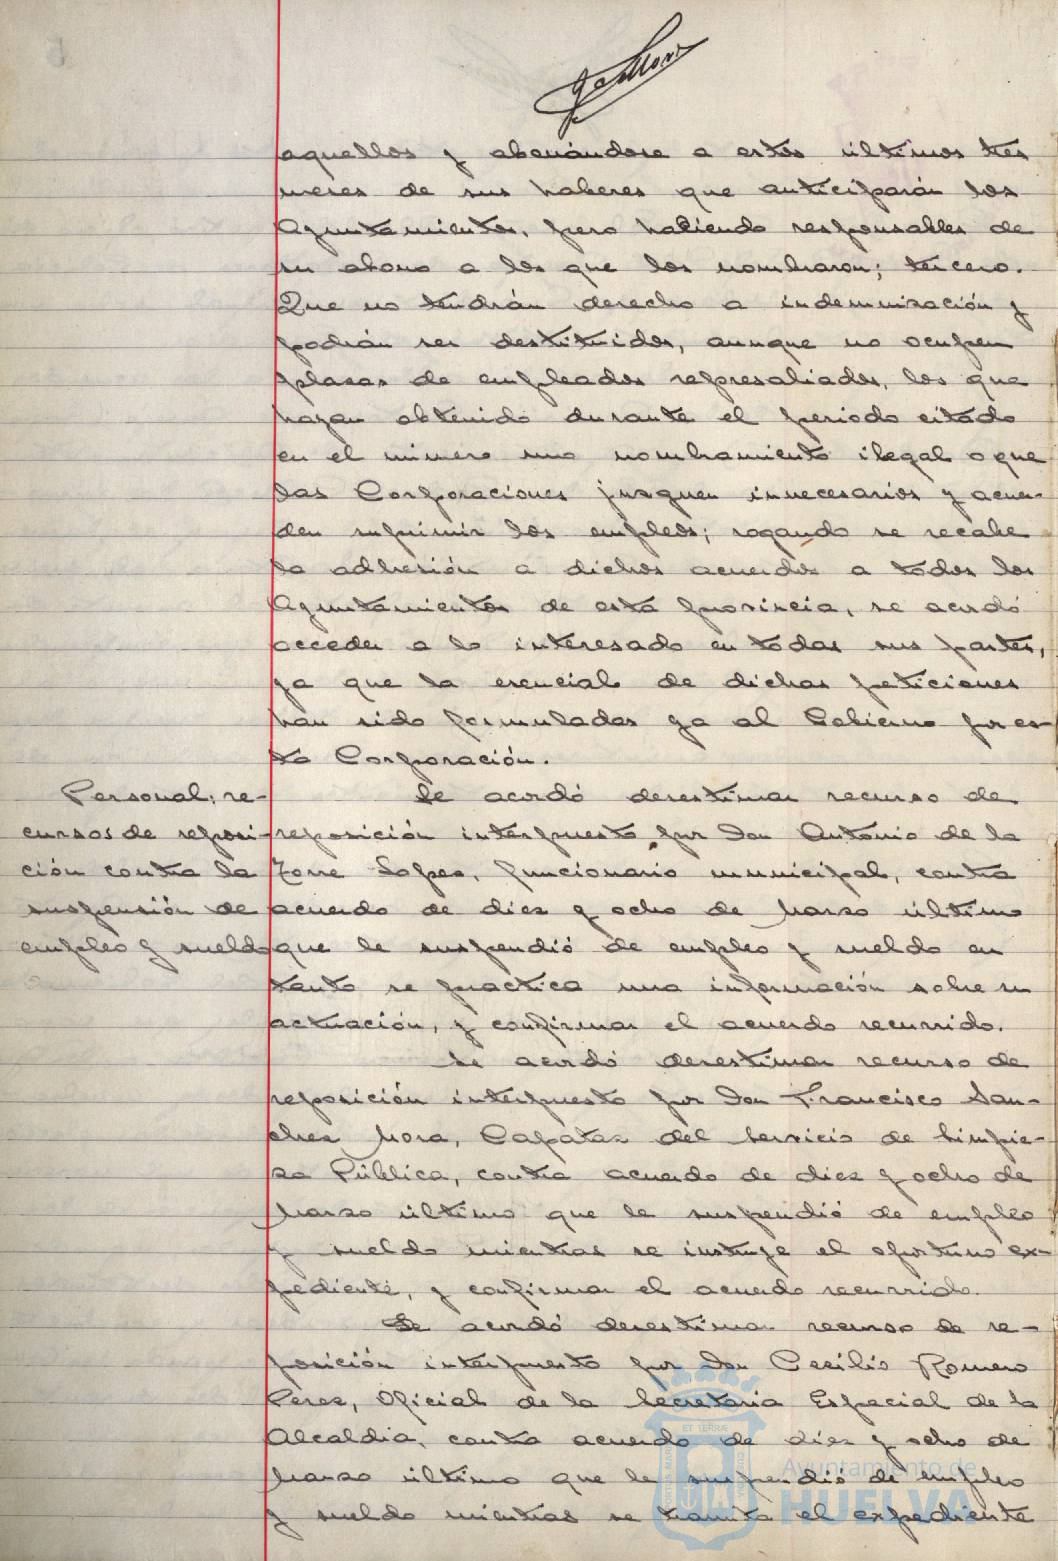 aquellos y abonándose a estos últimos tres
meses de sus haberes que anticiparán los
Ayuntamientos, pero habiendo responsables de
su abono a los que los nombraron; tercero.
Que no tendrán derecho a indemnización y
podrán ser destituidos, aunque no ocupen
plazas de empleados represaliados, los que
hayan obtenido durante el periodo citado
en el número uno nombramiento ilegal o que
las Corporaciones juzguen innecesarios y acuer-
den suprimir los empleos; rogando se recabe
la adhesión a dichos acuerdos a todos los
Ayuntamientos de esta provincia, se acordó
acceder a lo interesado en todas sus partes,
ya que la esencial de dichas peticiones
han sido formuladas ya al Gobierno por es-
ta Corporación.
Personal; re-
cursos de reposi-
ción contra la
suspensión de
empleo y sueldo
Se acordó desestimar recurso de
reposición interpuesto por Don Antonio de la
Torre Lopez, funcionario municipal, contra
acuerdo de diez y ocho de Marzo último
que le suspendió de empleo y sueldo en
tanto se practica una información sobre su
actuación, y confirmar el acuerdo recurrido.
Se acordó desestimar recurso de
reposición interpuesto por Don Francisco San-
chez Mora, Capataz del Servicio de Limpie-
za Pública, contra acuerdo de diez y ocho de
Marzo último que le suspendió de empleo
y sueldo mientras se instruye el oportuno ex-
pediente, y confirmar el acuerdo recurrido.
Se acordó desestimar recurso de re-
posición interpuesto por Don Cecilio Romero
Perez, Oficial de la Secretaria Especial de la
Alcaldia, contra acuerdo de diez y ocho de
Marzo último que le suspendió de empleo
y sueldo mientras se tramita el expediente
Ayuntamiento de
HUELVA